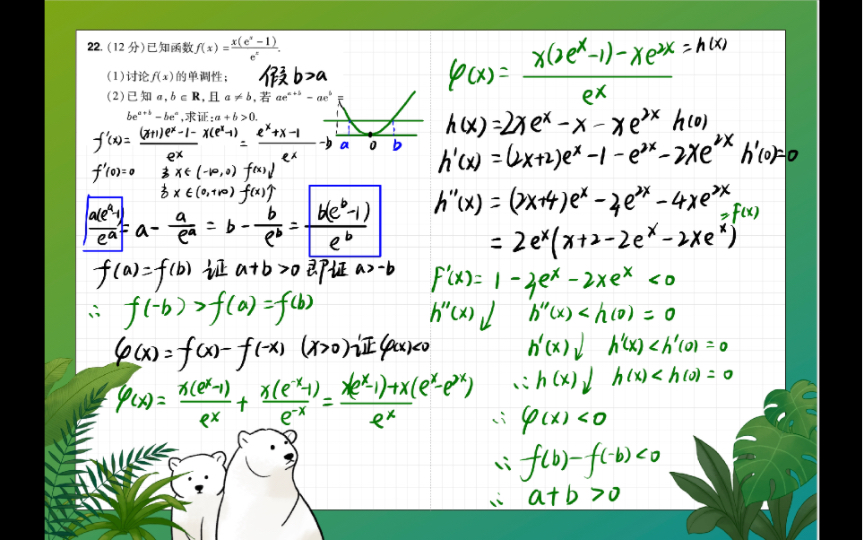 22. (12分)已知函数f(x)=x(eˣ-1)/eˣ.
(1)讨论f(x)的单调性;
假b>a
(2)已知a,b∈R,且a≠b,若aeᵃ⁺ᵇ-aeᵇ=
beᵃ⁺ᵇ-beᵃ,求证:a+b>0.
a 0 b
f'(x)=((x+1)eˣ-1-x(eˣ-1))/eˣ=(eˣ+x-1)/eˣ
f'(0)=0 当x∈(-∞,0) f(x)↓
当x∈(0,+∞) f(x)↑
a(eᵃ-1)/eᵃ=a-a/eᵃ=b-b/eᵇ=b(eᵇ-1)/eᵇ
f(a)=f(b) 证a+b>0 即证a>-b
∴ f(-b)>f(a)=f(b)
φ(x)=f(x)-f(-x) (x>0)证φ(x)<0
φ(x)=x(eˣ-1)/eˣ+x(e⁻ˣ-1)/e⁻ˣ=(x(eˣ-1)+x(eˣ-e²ˣ))/eˣ
φ(x)=(x(2eˣ-1)-xe²ˣ)/eˣ =h(x)
h(x)=2xeˣ-x-xe²ˣ h(0)
h'(x)=(2x+2)eˣ-1-e²ˣ-2xe²ˣ h'(0)=0
h''(x)=(2x+4)eˣ-4e²ˣ-4xe²ˣ
=2eˣ(x+2-2eˣ-2xeˣ) =F(x)
F'(x)=1-4eˣ-2xeˣ<0
h''(x)↓ h''(x)<h(0)=0
h'(x)↓ h'(x)<h'(0)=0
∴h(x)↓ h(x)<h(0)=0
∴ φ(x)<0
∴ f(b)-f(-b)<0
∴ a+b>0